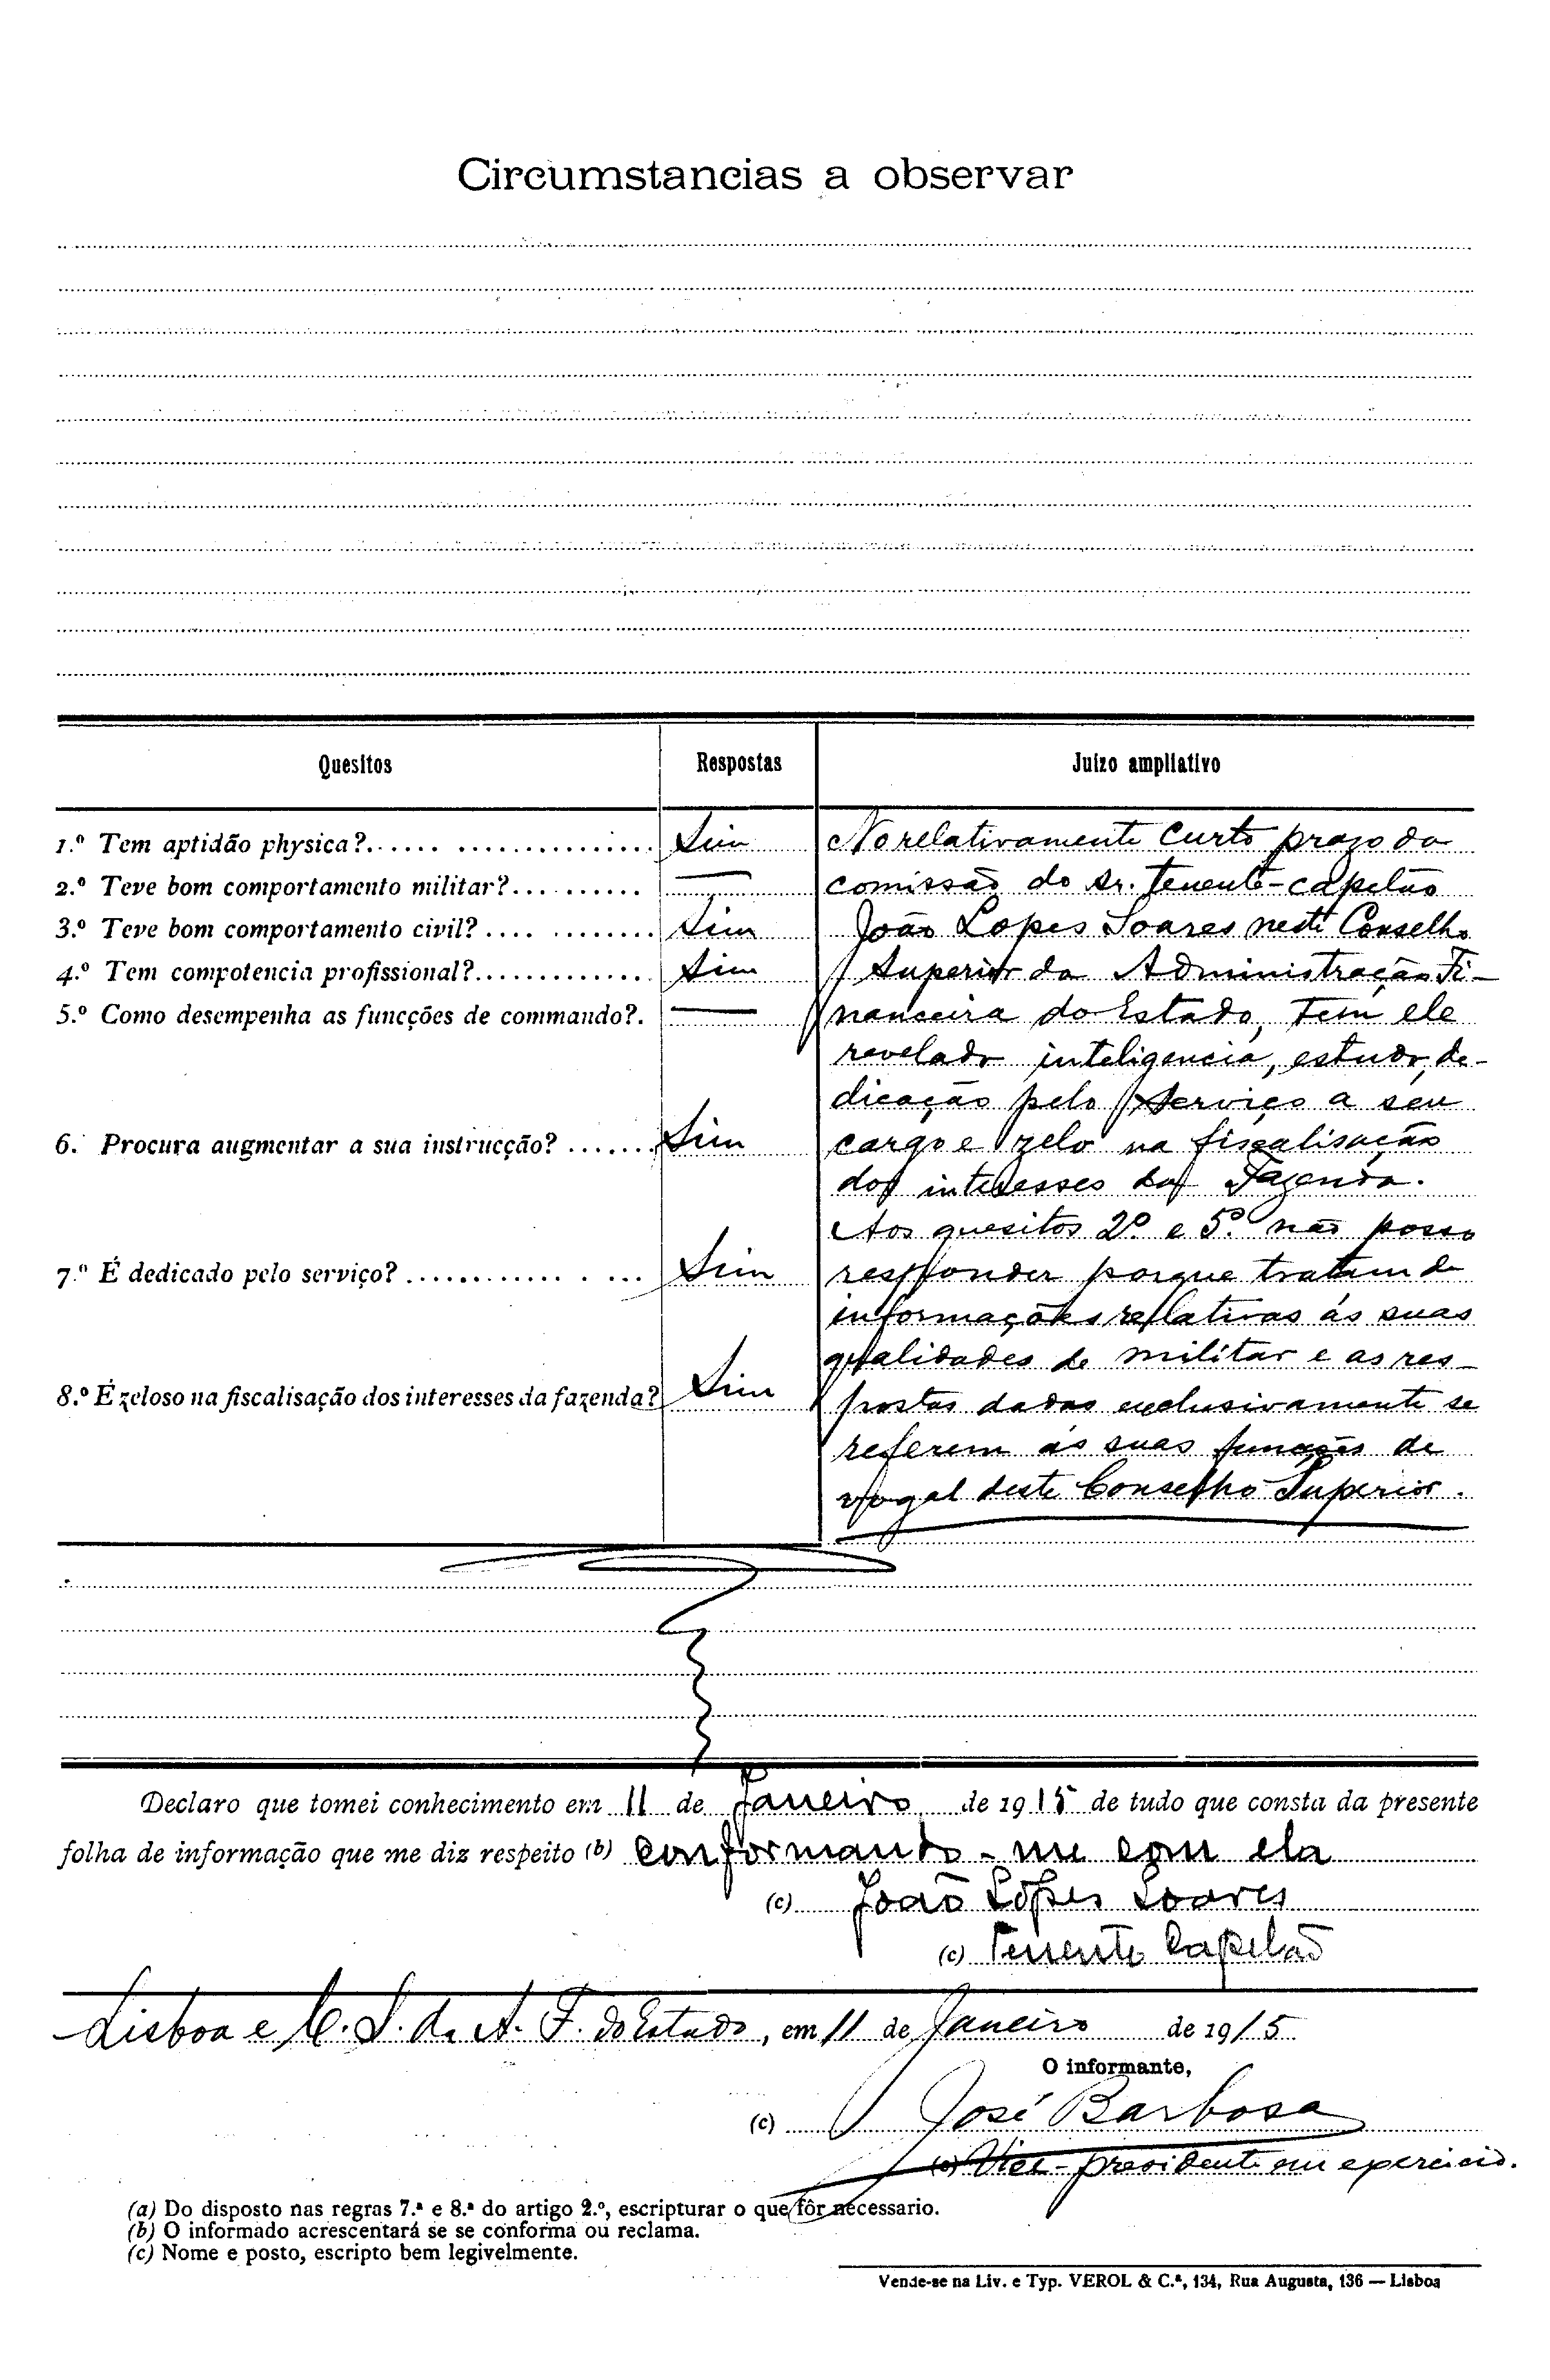 Circumstancias a observar
Quesitos Respostas Juizo ampliativo
1.º Tem aptidão physica? Sim
2.º Teve bom comportamento militar? —
3.º Teve bom comportamento civil? Sim
4.º Tem competencia profissional? Sim
5.º Como desempenha as funcções de commando? —
6.º Procura augmentar a sua instrucção? Sim
7.º É dedicado pelo serviço? Sim
8.º É zeloso na fiscalisação dos interesses da fazenda? Sim
No relativamente curto prazo da
comissão do sr. tenente-capelão
João Lopes Soares neste Conselho
Superior da Administração Fi-
nanceira do Estado, tem ele
revelado inteligencia, estudo, de-
dicação pelo serviço a seu
cargo e zelo na fiscalisação
dos interesses da Fazenda.
Aos quesitos 2º e 5º não posso
responder porque tratam de
informações relativas ás suas
qualidades de militar e as res-
postas dadas exclusivamente se
referem ás suas funções de
vogal deste Conselho Superior.
Declaro que tomei conhecimento em 11 de Janeiro de 1915 de tudo que consta da presente
folha de informação que me diz respeito (b) conformando-me com ela
(c) João Lopes Soares
(c) Tenente Capelão
Lisboa e C. S. da A. F. do Estado, em 11 de Janeiro de 1915
O informante,
(c) José Barbosa
(c) Vice-presidente em exercicio.
(a) Do disposto nas regras 7.ª e 8.ª do artigo 2.º, escripturar o que fôr necessario.
(b) O informado acrescentará se se conforma ou reclama.
(c) Nome e posto, escripto bem legivelmente.
Vende-se na Liv. e Typ. VEROL & C.ª, 134, Rua Augusta, 136 — Lisboa